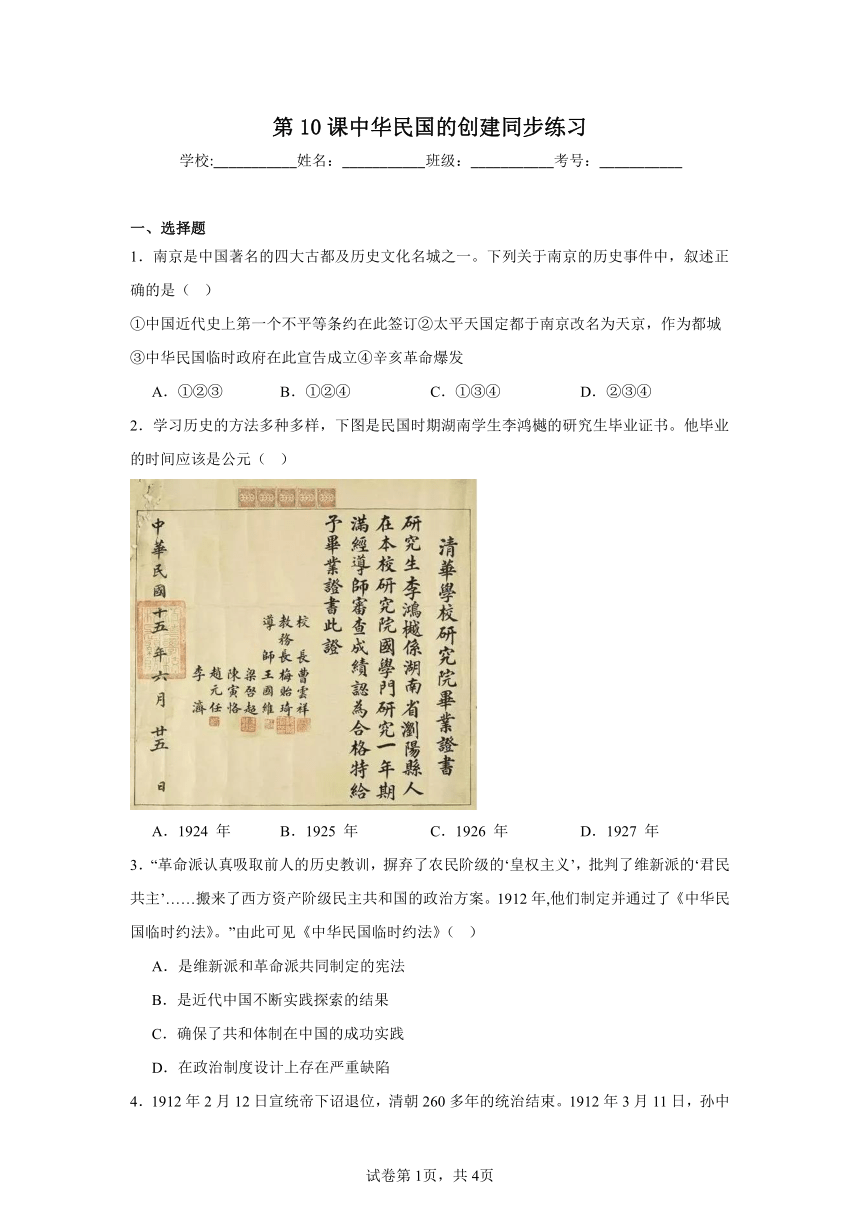 第10课中华民国的创建同步练习
学校:___________姓名：___________班级：___________考号：___________
一、选择题
1．南京是中国著名的四大古都及历史文化名城之一。下列关于南京的历史事件中，叙述正
确的是（ ）
①中国近代史上第一个不平等条约在此签订②太平天国定都于南京改名为天京，作为都城
③中华民国临时政府在此宣告成立④辛亥革命爆发
A．①②③ B．①②④ C．①③④ D．②③④
2．学习历史的方法多种多样，下图是民国时期湖南学生李鸿樾的研究生毕业证书。他毕业
的时间应该是公元（ ）
清華學校研究院畢業證書
研究生李鴻樾係湖南省瀏陽縣人
在本校研究院國學門研究一年期
滿經導師審查成績認為合格特給
予畢業證書此證
校長曹雲祥
教務長梅貽琦
導師王國維
梁啓超
陳寅恪
趙元任
李濟
中華民國十五年六月廿五日
A．1924 年 B．1925 年 C．1926 年 D．1927 年
3．“革命派认真吸取前人的历史教训，摒弃了农民阶级的‘皇权主义’，批判了维新派的‘君民
共主’……搬来了西方资产阶级民主共和国的政治方案。1912年,他们制定并通过了《中华民
国临时约法》。”由此可见《中华民国临时约法》（ ）
A．是维新派和革命派共同制定的宪法
B．是近代中国不断实践探索的结果
C．确保了共和体制在中国的成功实践
D．在政治制度设计上存在严重缺陷
4．1912年2月12日宣统帝下诏退位，清朝260多年的统治结束。1912年3月11日，孙中
试卷第1页，共4页